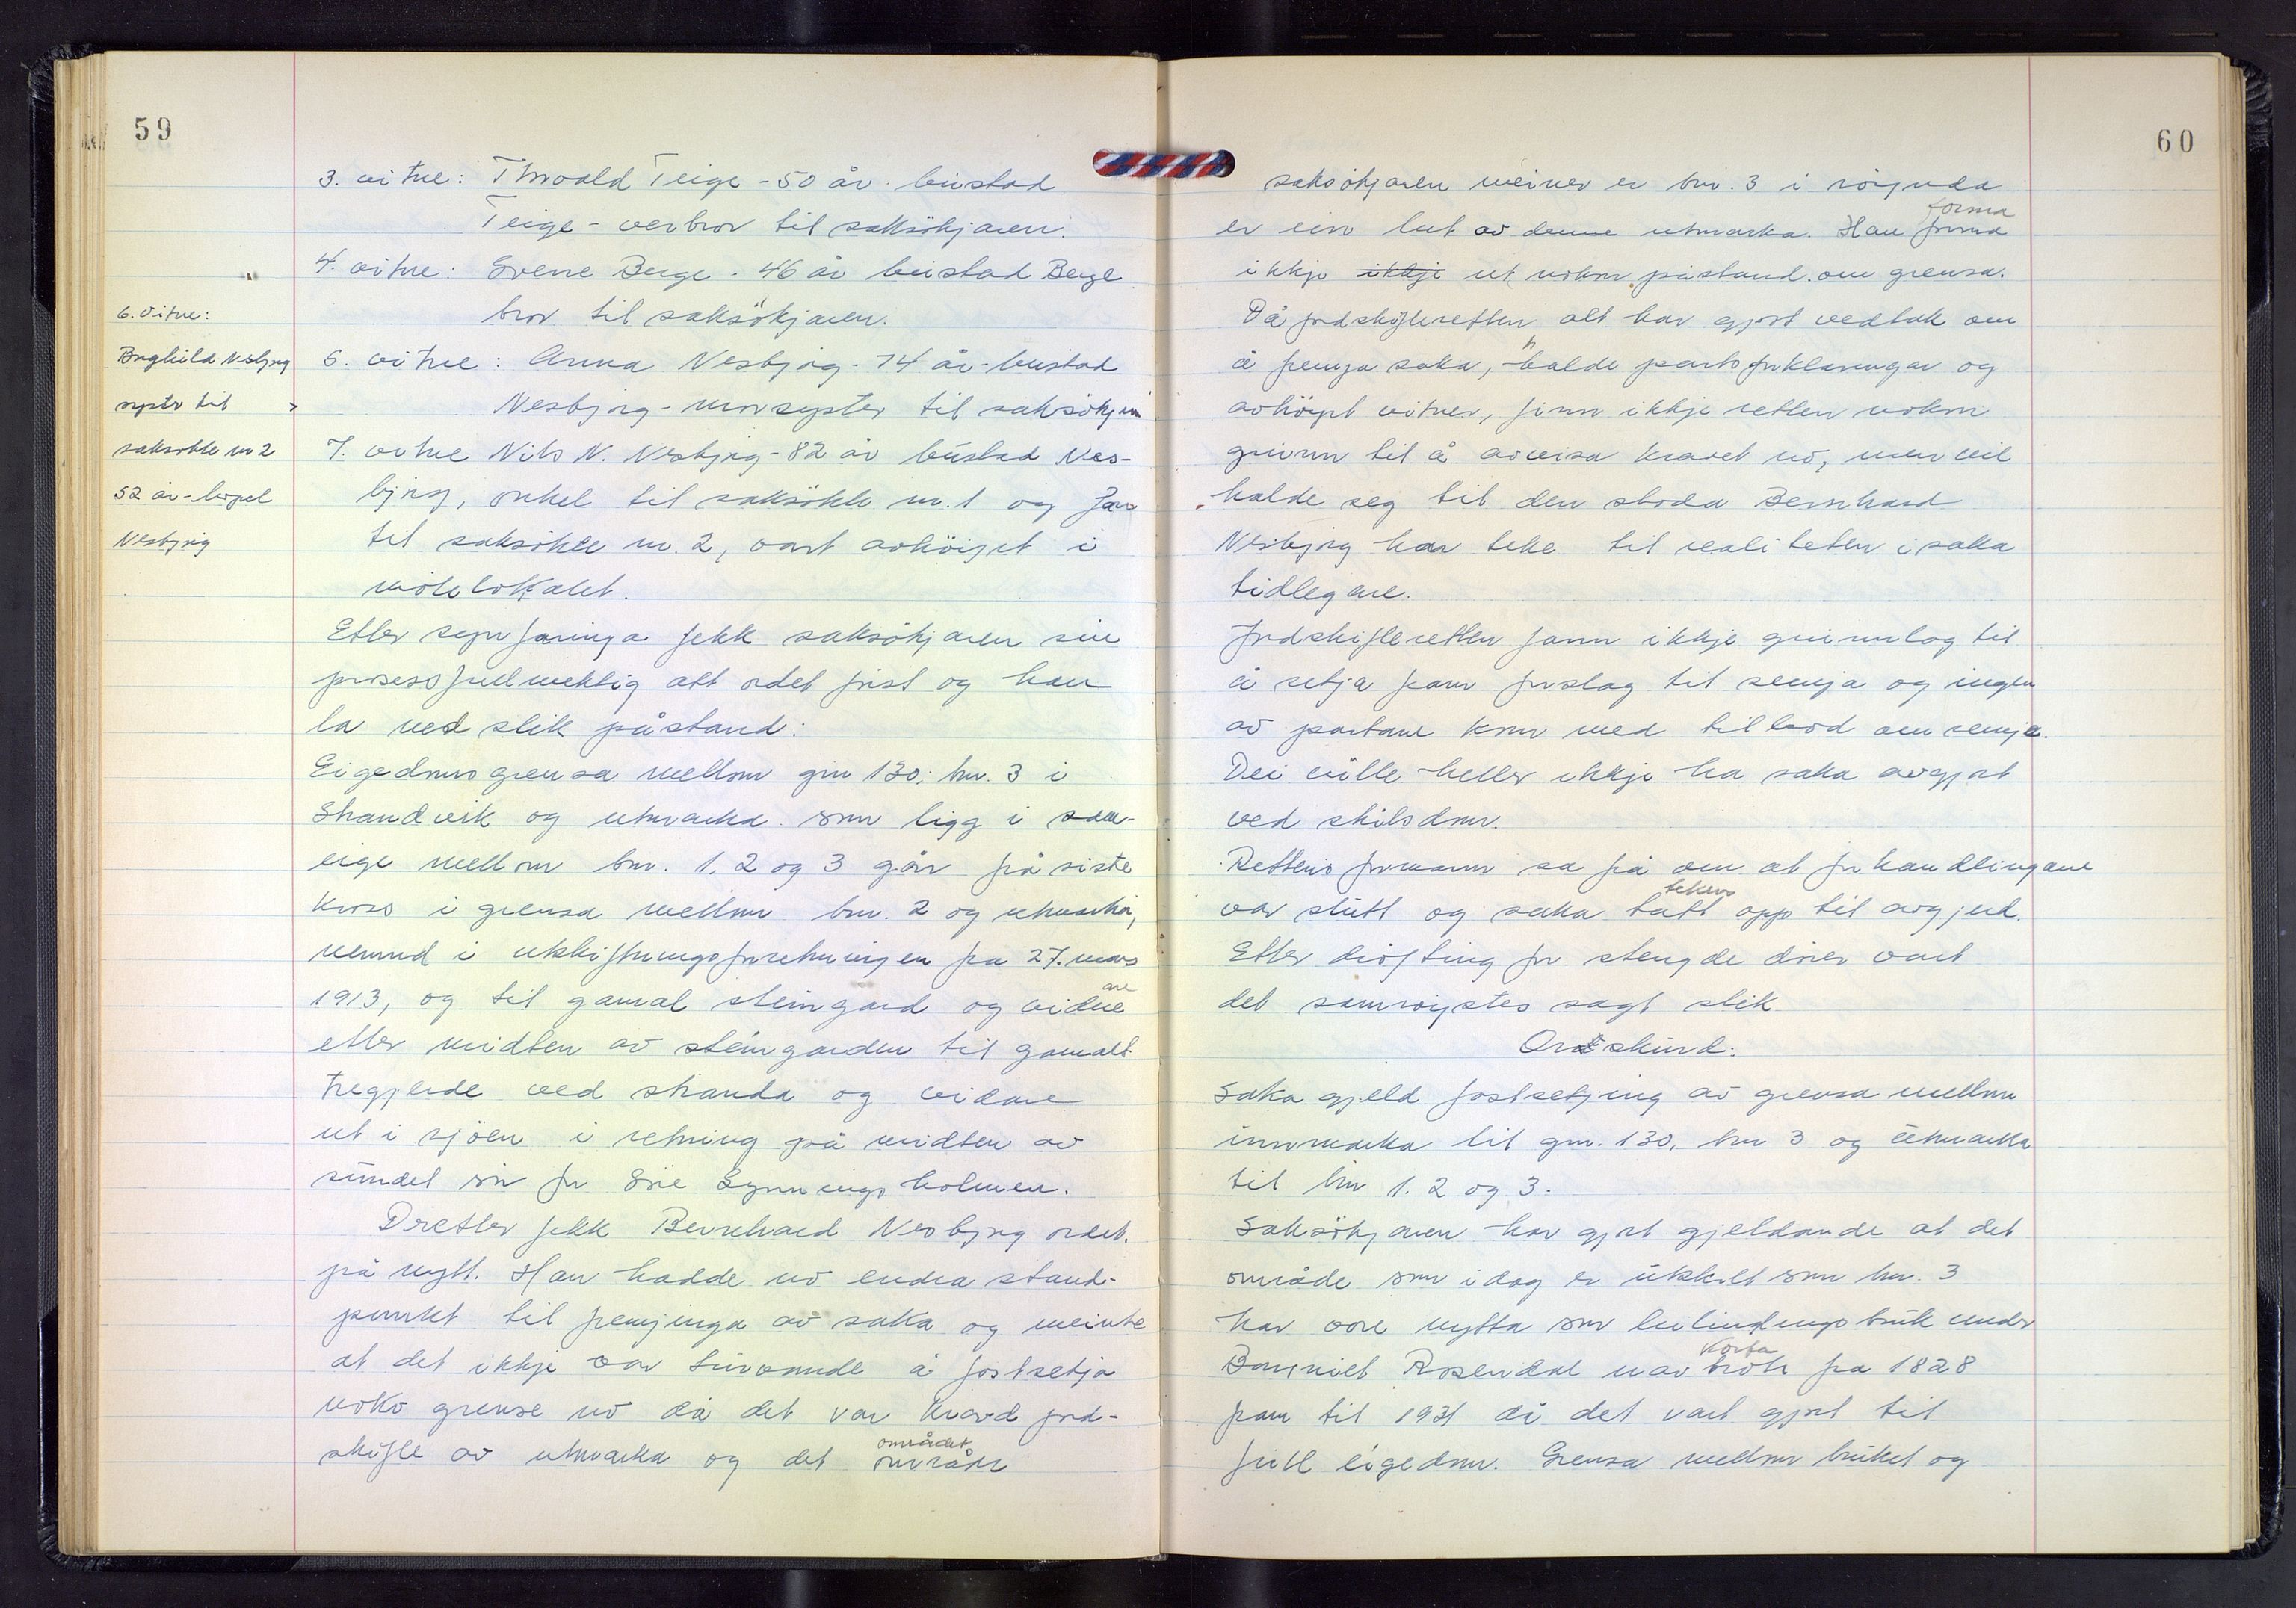 59
3. vitne: Thorvald Teige - 50 år - bustad
Teige - verbror til saksökjaren.
4. vitne: Sverre Berge - 46 år bustad Berge
bror til saksökjaren.
6. vitne:
Borghild Nesbjørg
syster til
saksøkte nr 2
52 år -
Nesbjørg
5. vitne: Anna Nesbjørg - 74 år - bustad
Nesbjørg - morsyster til saksökjaren
7. vitne Nils N. Nesbjørg - 82 år bustad Nes-
bjørg, onkel til saksökte nr. 1 og far
til saksökte nr. 2, vart avhöyrt i
mötelokalet.
Etter synfaringa fekk saksökjaren sin
prosessfullmektig att ordet først og han
la ned slik påstand:
Eigedomsgrensa mellom gnr 130, bnr. 3 i
Strandvik og utmarka som ligg i sam-
eige mellom bnr. 1, 2 og 3 går frå siste
kross i grensa mellom bnr. 2 og utmarka,
nemnd i utskiftningsforretningen fra 27. mars
1913, og til gamal steingard og vidare
etter midten av steingarden til gamalt
tregjerde ved stranda og vidare
ut i sjöen i retning på midten av
sundet sør for Sre holmen.
Deretter fekk Bernhard Nesbjørg ordet
på nytt. Han hadde no endra stand-
punkt til fremjinga av saka og meinte
at det ikkje var turvande å fastsetja
noko grense no då det var kravd jord-
skifte av utmarka og det området
område
60
saksökjaren meiner er bnr. 3 i röynda
er ein lut av denne utmarka. Han forma forma
ikkje ikkje ut nokon påstand om grensa.
Då jordskifteretten alt har gjort vedtak om
å fremja saka, halde partsforklaringar og
avhöyrt vitner, finn ikkje retten nokon
grunn til å avvisa kravet no, men vil
halde seg til den stoda Bernhard
Nesbjørg har teke til realiteten i saka
tidlegare.
Jordskifteretten fann ikkje grunnlag til
å setja fram forslag til semja og ingen
av partane kom med tilbod om semja.
Dei ville heller ikkje ha saka avgjort
ved skilsdom.
Rettens formann sa frå om at forhandlingane
var slutt og saka tatt teken opp til avgjerd.
Etter dröfting for stengde dører vart
det samröystes sagt slik
Orskurd:
Saka gjeld fastsetjing av grensa mellom
innmarka til gnr. 130, bnr 3 og utmarka
til bnr 1. 2 og 3.
Saksökjaren har gjort gjeldande at det
område som idag er utskilt som bnr. 3
har vore nytta som leilindingsbruk under
Baroniet Rosendal frå 1828
fram til 1931 då det vart gjort til
full eigedom. Grensa mellom bruket og